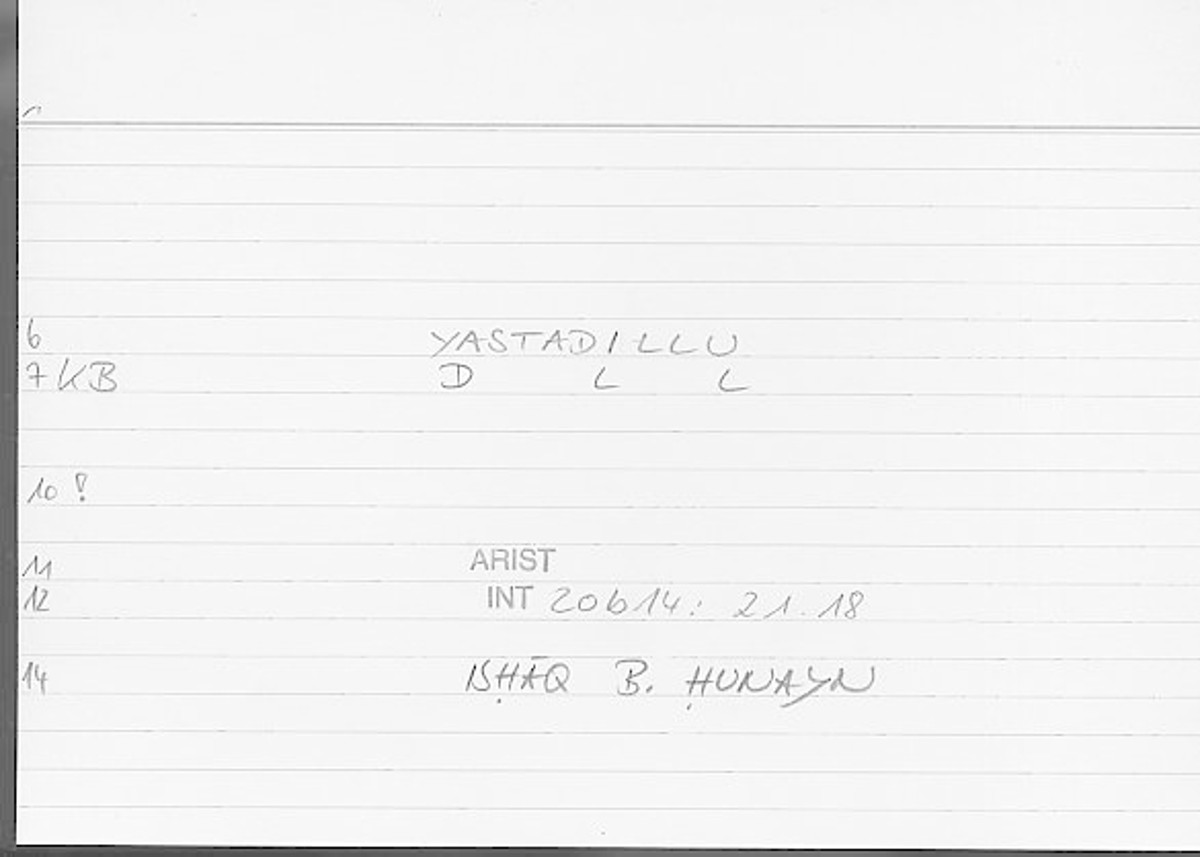 6 YASTADILLU
7 KB D L L
10 !
11 ARIST
12 INT 20b14: 21.18
14 ISḤĀQ B. ḤUNAYN